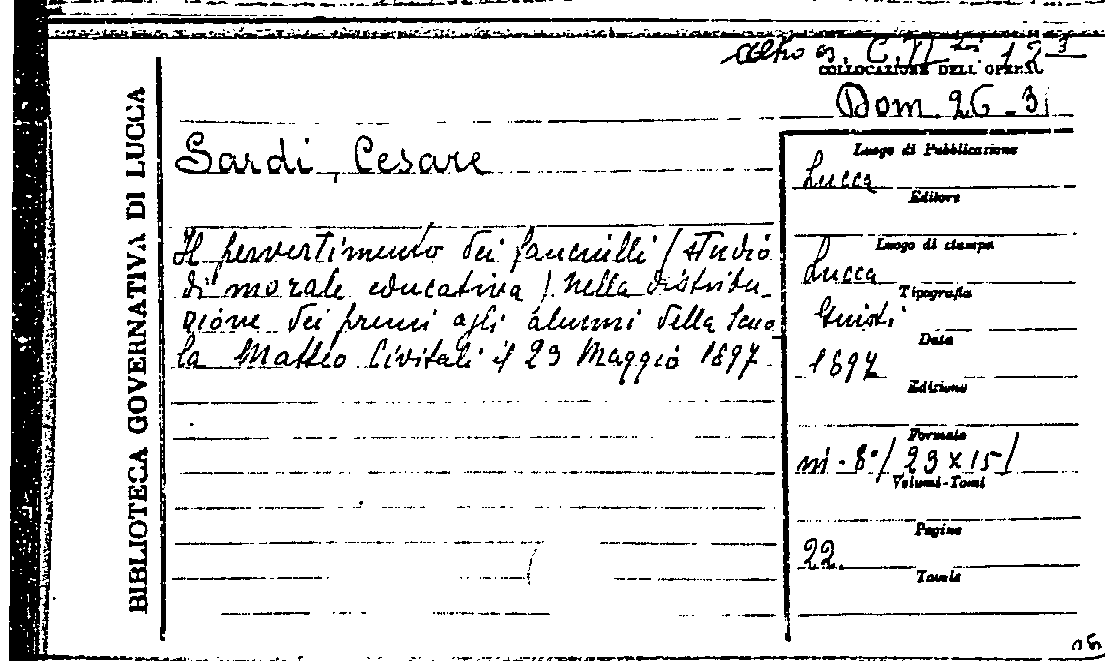 altro es. C.
COLLOCAZIONE DELL'OPERA
Dom. 26-3
BIBLIOTECA GOVERNATIVA DI LUCCA
Sardi, Cesare
Il pervertimento dei fanciulli (studio
di morale educativa) nella distribu-
zione dei premi agli alunni della Scuo
la Matteo Civitali il 23 Maggio 1897
Luogo di Pubblicazione
Lucca
Editore
Luogo di stampa
Lucca
Tipografia
Giusti
Data
1897
Edizione
Formato
in-8°/23x15/
Volumi-Tomi
Pagine
22.
Tavole